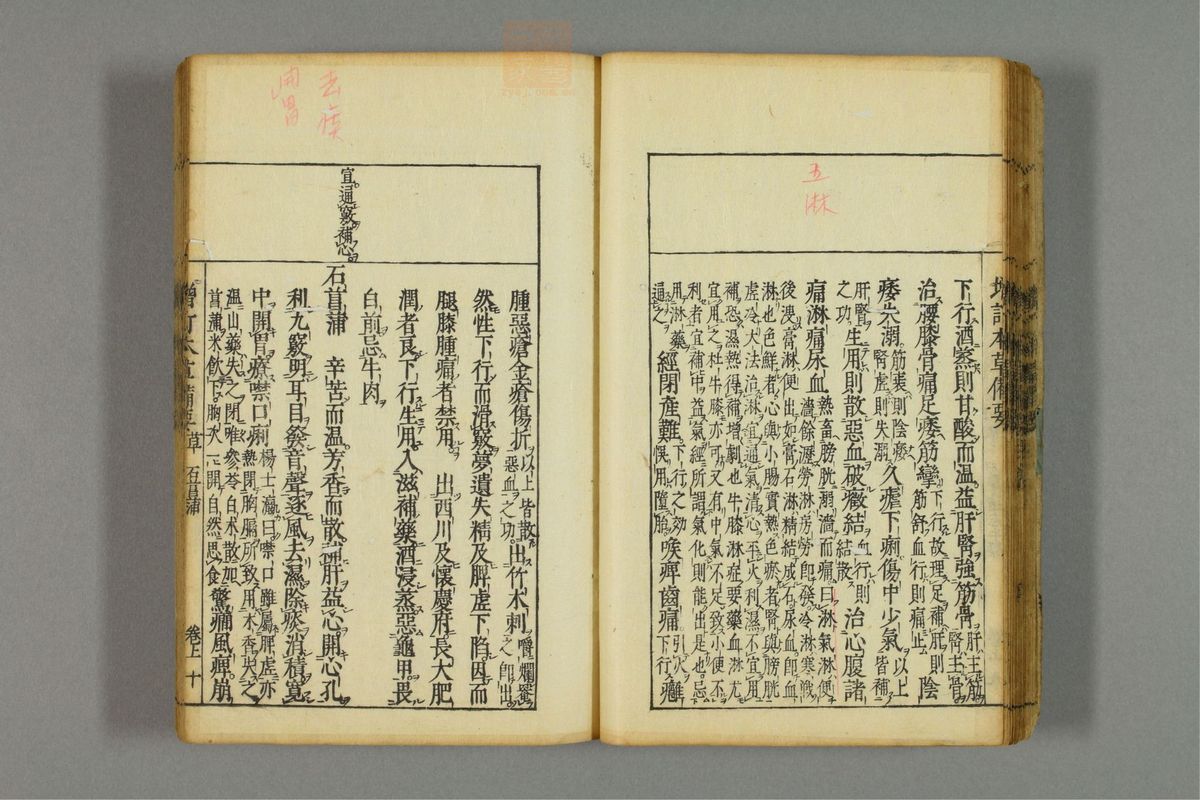 五淋
下行酒蒸則甘酸而溫益肝腎強筋骨肝主筋腎主骨
治腰膝骨痛足痿筋攣下行故理足補肝則筋舒血行則痛止陰
痿失溺筋衰則陰痿腎虛則失溺久瘧下痢傷中少氣以上皆補
肝腎之功生用則散惡血破癥結血行則結散治心腹諸
痛淋痛尿血熱畜膀胱溺濇而痛曰淋氣淋便濇餘瀝勞淋房勞卽發冷淋寒戰
後溲膏淋便出如膏石淋精結成石尿血卽血淋也色鮮者心與小腸實熱色瘀者腎與膀胱
虛冷大法治淋宜通氣淸心平火利濕不宜用補恐濕熱得補增劇也牛膝淋症要藥血淋尤
宜用之杜牛膝亦可又有中氣不足致小便不利者宜補中益氣經所謂氣化則能出是也忌
用淋藥通之經閉產難下行之効悞用墮胎喉痺齒痛引火下行癰
增訂本草備要
腫惡瘡金瘡傷折以上皆散惡血之功出竹木刺嚼爛罨之卽出
然性下行而滑竅夢遺失精及脾虛下陷因而
腿膝腫痛者禁用出西川及懷慶府長大肥
潤者良下行生用入滋補藥酒浸蒸惡龜甲畏
白前忌牛肉
宣通竅補心
石菖蒲辛苦而溫芳香而散補肝益心開心孔
利九竅明耳目發音聲逐風去濕除痰消積寬
中開胃療噤口痢楊士瀛曰噤口雖屬脾虛亦熱閉胸膈所致用木香失之
溫山藥失之閉唯參苓白朮散加菖蒲米飮下胸次一開自然思食驚癇風痺崩
增訂本草備要 草 石菖蒲 卷上 十
去痰